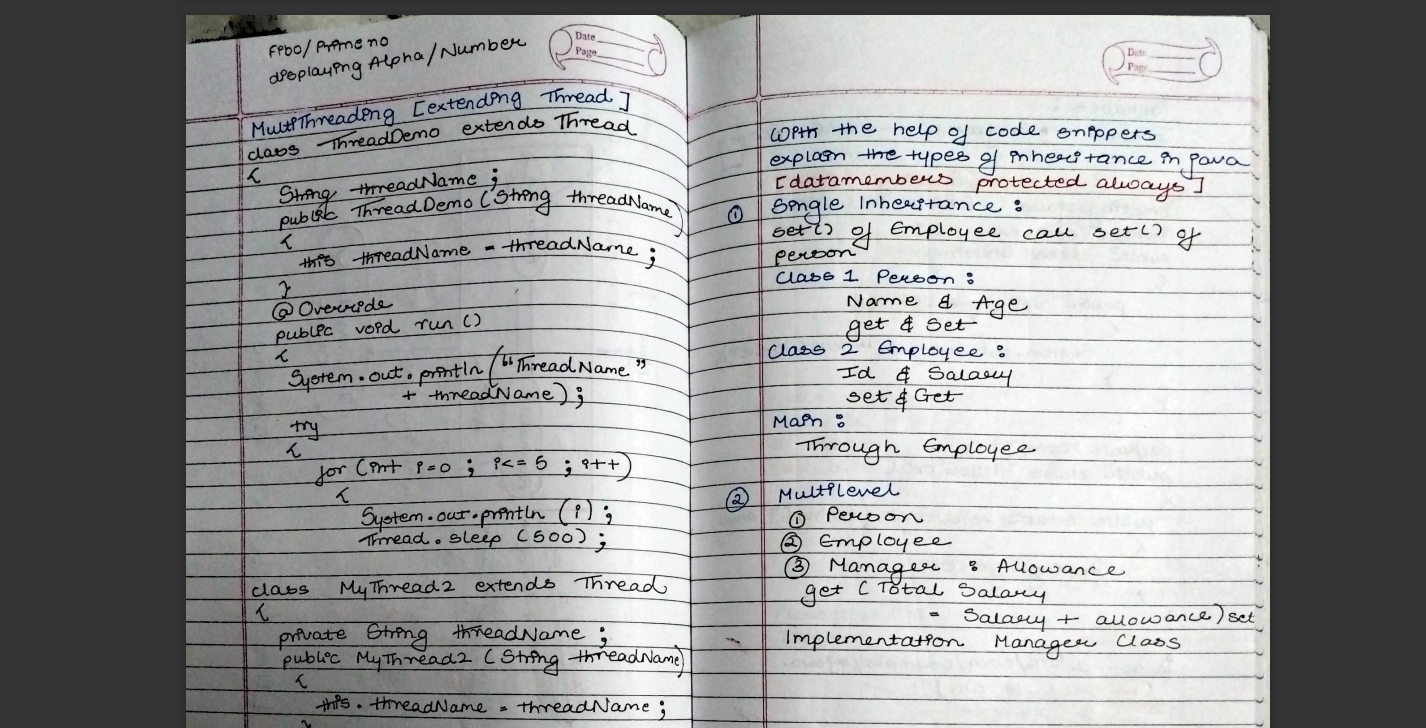 Fibo/Prime no
displaying Alpha/Number
Date
Page
MultiThreading [extending Thread]
class ThreadDemo extends Thread
{
String threadName ;
public ThreadDemo (String threadName)
{
this threadName = threadName ;
}
@Override
public void run ()
{
System.out.println ("ThreadName"
+ threadName) ;
try
{
for (int i=0 ; i<= 5 ; i++)
{
System.out.println (i) ;
Thread.sleep (500) ;
class MyThread2 extends Thread
{
private String threadName ;
public MyThread2 (String threadName)
{
this.threadName = threadName ;
}
Date
Page
With the help of code snippers
explain the types of inheritance in java
[datamembers protected always]
① Single Inheritance :
set() of Employee call set() of
person
Class 1 Person :
Name & Age
get & Set
Class 2 Employee :
Id & Salary
set & Get
Main :
Through Employee
② Multilevel
① Person
② Employee
③ Manager : Allowance
get (Total Salary
= Salary + allowance) set
Implementation Manager Class